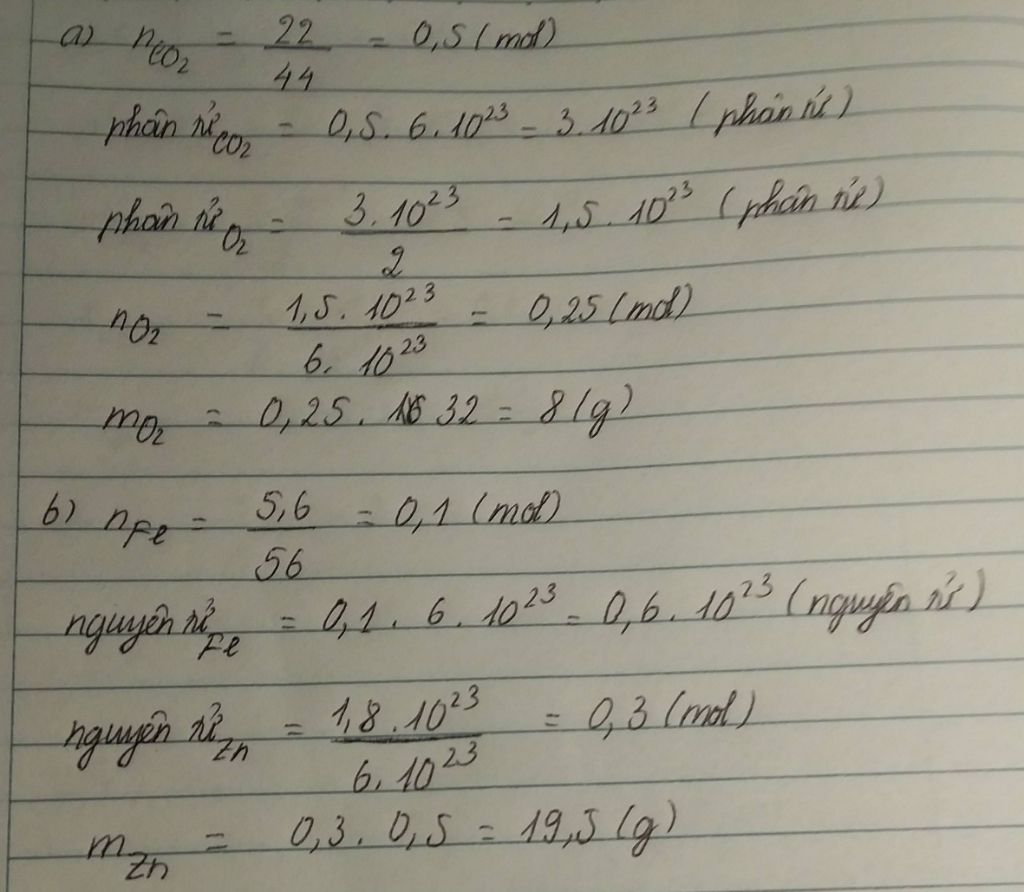 a) n_CO₂ = 22/44 = 0,5 (mol)
phân tử_CO₂ = 0,5 . 6 . 10²³ = 3 . 10²³ (phân tử)
phân tử_O₂ = 3 . 10²³/2 = 1,5 . 10²³ (phân tử)
n_O₂ = 1,5 . 10²³/6 . 10²³ = 0,25 (mol)
m_O₂ = 0,25 . 32 = 8 (g)
b) n_Fe = 5,6/56 = 0,1 (mol)
nguyên tử_Fe = 0,1 . 6 . 10²³ = 0,6 . 10²³ (nguyên tử)
nguyên tử_Zn = 1,8 . 10²³/6 . 10²³ = 0,3 (mol)
m_Zn = 0,3 . 0,5 = 19,5 (g)